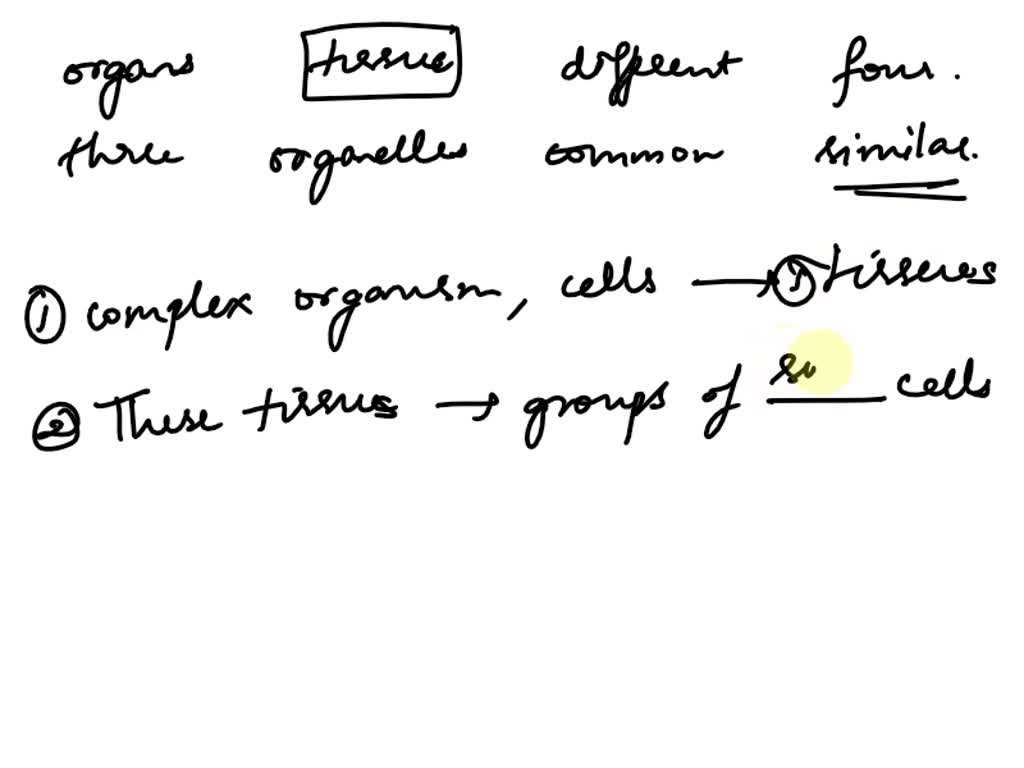 organs tissue different four.
three organelles common similar.
① complex organism, cells → ① tissues
② These tissues → groups of si cells